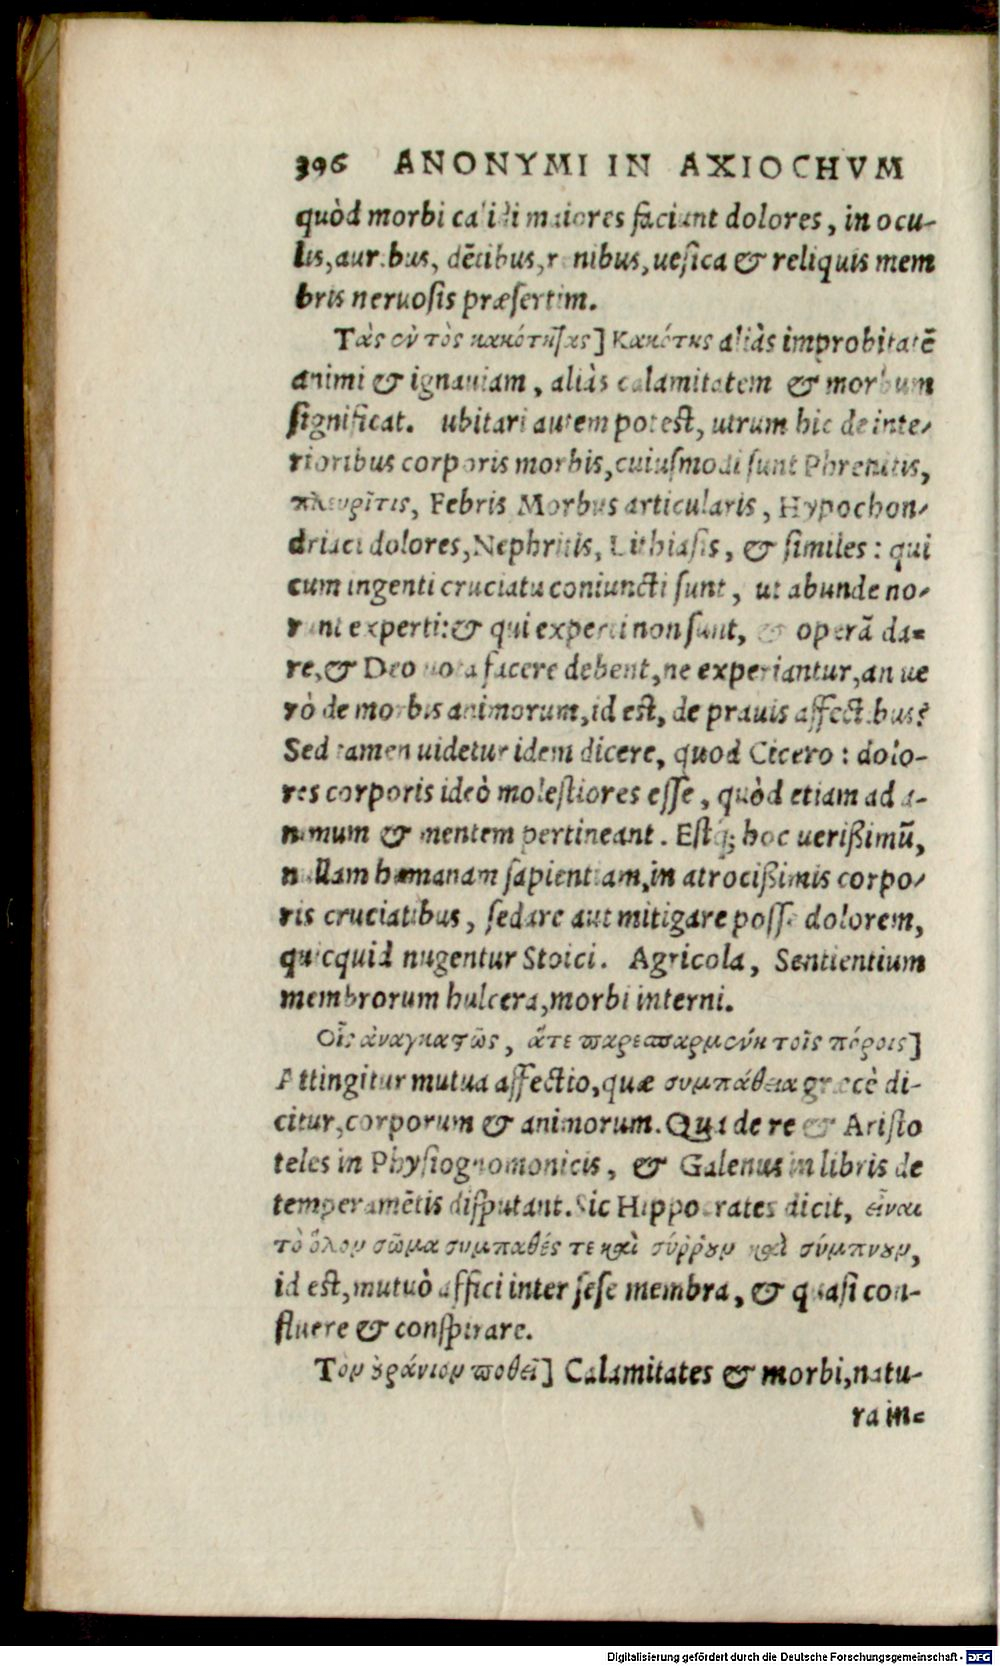 396 ANONYMI IN AXIOCHVM
quòd morbi calidi maiores faciant dolores, in ocu-
lis, auribus, dẽtibus, renibus, uesica & reliquis mem
bris neruosis præsertim.
Τὰς ἐν τὸς κακότητας] Κακότης aliàs improbitatẽ
animi & ignauiam, aliàs calamitatem & morbum
significat. ubitari autem potest, utrum hic de inte-
rioribus corporis morbis, cuiusmodi sunt Phrenitis,
πλευρῖτις, Febris Morbus articularis, Hypochon-
driaci dolores, Nephritis, Lithiasis, & similes: qui
cum ingenti cruciatu coniuncti sunt, ut abunde no-
runt experti: & qui experti non sunt, & operã da=
re, & Deo uota facere debent, ne experiantur, an ue
rò de morbis animorum, id est, de prauis affectibus?
Sed tamen uidetur idem dicere, quod Cicero: dolo-
res corporis ideò molestiores esse, quòd etiam ad a-
nimum & mentem pertineant. Estq; hoc uerißimũ,
nullam humanam sapientiam, in atrocißimis corpo-
ris cruciatibus, sedare aut mitigare posse dolorem,
quicquid nugentur Stoici. Agricola, Sentientium
membrorum hulcera, morbi interni.
Οἷς ἀναγκαςῶς, ἅτε παρεσπαρμένη τοῖς πόροις]
Attingitur mutua affectio, quæ συμπάθεια græcè di-
citur, corporum & animorum. Qua de re & Aristo
teles in Physiognomonicis, & Galenus in libris de
temperamẽtis disputant. Sic Hippocrates dicit, εἶναι
τὸ ὅλον σῶμα συμπαθές τε καὶ σύῤῥουν καὶ σύμπνουν,
id est, mutuò affici inter sese membra, & quasi con-
fluere & conspirare.
Τὸν οὐράνιον ποθεῖ] Calamitates & morbi, natu-
ra in=
Digitalisierung gefördert durch die Deutsche Forschungsgemeinschaft - DFG